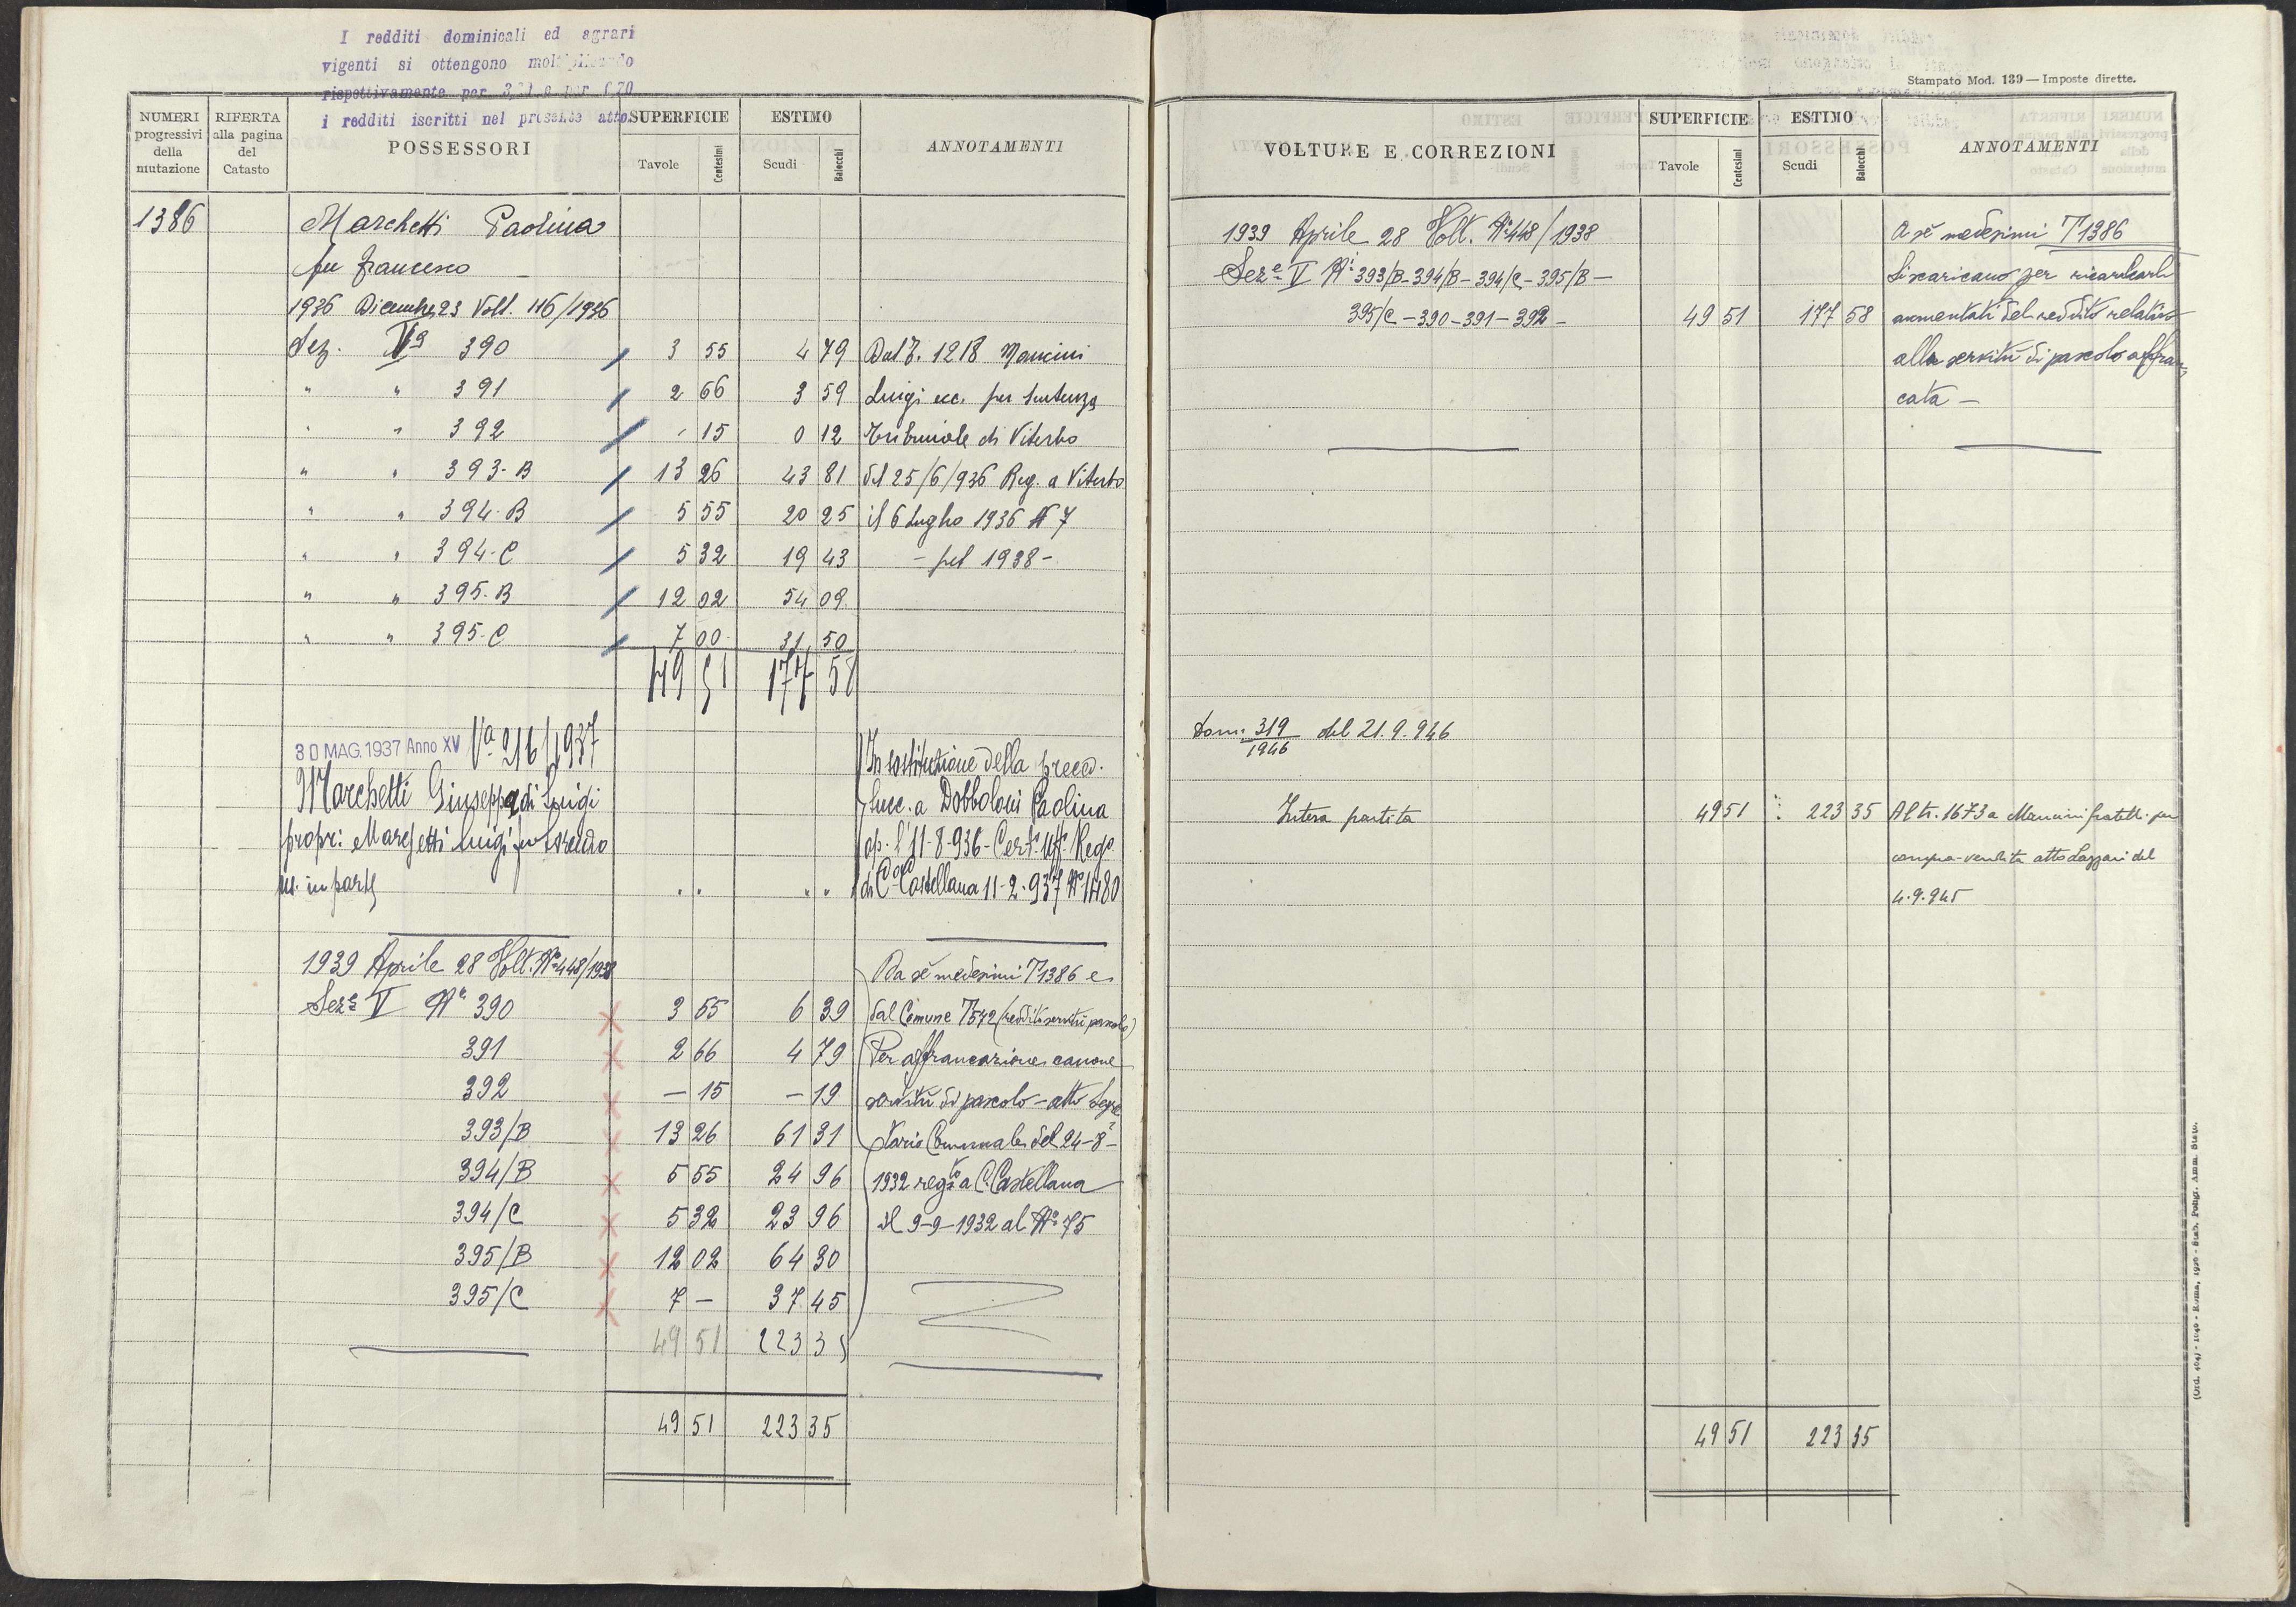 I redditi dominicali ed agrari
vigenti si ottengono moltiplicando
rispettivamente per 3,31 e per 6,70
i redditi iscritti nel presente atto.
NUMERI progressivi della mutazione
RIFERTA alla pagina del Catasto
POSSESSORI
SUPERFICIE
Tavole Centesimi
ESTIMO
Scudi Baiocchi
ANNOTAMENTI
1386 Marchetti Paolina
fu Francesco
1936 Dicembre 23 Volt. 116/1936
Sez. Va 390 3 55 4 79 Dal T. 1218 Mancini
" " 391 2 66 3 59 Luigi ecc. per sentenza
" " 392 - 15 0 12 Tribunale di Viterbo
" " 393-B 13 26 43 81 del 25/6/936 Reg. a Viterbo
" " 394-B 5 55 20 25 il 6 Luglio 1936 N 7
" " 394-C 5 32 19 43 - pel 1938 -
" " 395-B 12 02 54 09
" " 395-C 7 00 31 50
49 51 177 58
30 MAG. 1937 Anno XV Va 216/1937
Marchetti Giuseppa di Luigi
propr: Marchetti Luigi fu
us. in parte
In sostituzione della preced.
Succ. a Dobboloni Paolina
ap. l'11-8-936 - Cert. Uff. Rego
di Ca Castellana 11-2-937 No 1480
1939 Aprile 28 Volt. No 448/1938 Da sè medesimi T 1386 e
Seze V Ni 390 3 55 6 39 dal Comune T 572 (reddito servitù pascolo)
391 2 66 4 79 Per affrancazione canone
392 — 15 — 19 servitù di pascolo - atto Segre
393/B 13 26 61 31 tario Comunale del 24-8-
394/B 5 55 24 96 1932 regto a C. Castellana
394/C 5 32 23 96 il 9-9-1932 al No 75
395/B 12 02 64 30
395/C 7 — 37 45
49 51 223 35
49 51 223 35
Stampato Mod. 139 — Imposte dirette.
VOLTURE E CORREZIONI
SUPERFICIE
Tavole Centesimi
ESTIMO
Scudi Baiocchi
ANNOTAMENTI
1939 Aprile 28 Volt. No 448/1938 A sè medesimi T 1386
Seze V Ni 393/B - 394/B - 394/C - 395/B - Si scaricano per ricaricarli
395/C - 390 - 391 - 392 - 49 51 177 58 aumentati del reddito relativo
alla servitù di pascolo affran
cata —
Dom. 319/1946 del 21.9.946
Intera partita 49 51 223 35 Al tr. 1673 a Mancini fratelli per
compra-vendita atto Lazzari del
4.9.945
49 51 223 35